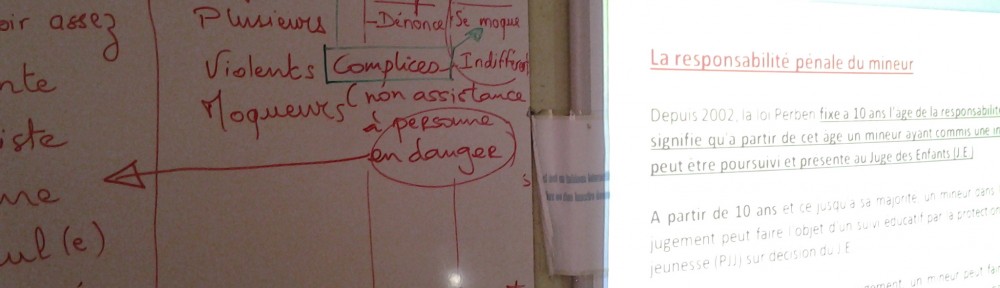 oir assez
nte
iste
ul(e)
Plusieurs
Violents
Moqueurs
Dénonce
Se moque
Complices
Indiffér
(non assistance
à personne
en danger
La responsabilité pénale du mineur
Depuis 2002, la loi Perben fixe a 10 ans l'age de la responsabilit
signifie qu'a partir de cet age un mineur ayant commis une in
peut être poursuivi et presente au Juge des Enfants (J.E.)
A partir de 10 ans et ce jusqu'a sa majorite, un mineur dans
jugement peut faire l'objet d'un suivi educatif par la protection
jeunesse (PJJ) sur decision du J.E.
un mineur peut fai